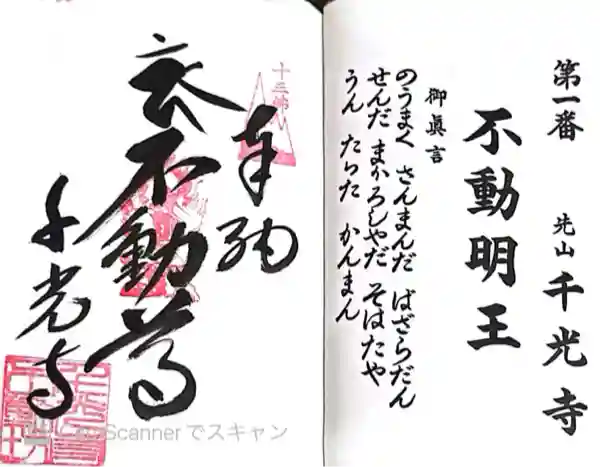 第一番 先山 千光寺
不動明王
御眞言
のうまく さんまんだ ばざらだん
せんだ まかろしやだ そはたや
うん たらた かんまん
十三佛
奉納
衣不動尊
千光寺
CamScannerでスキャン